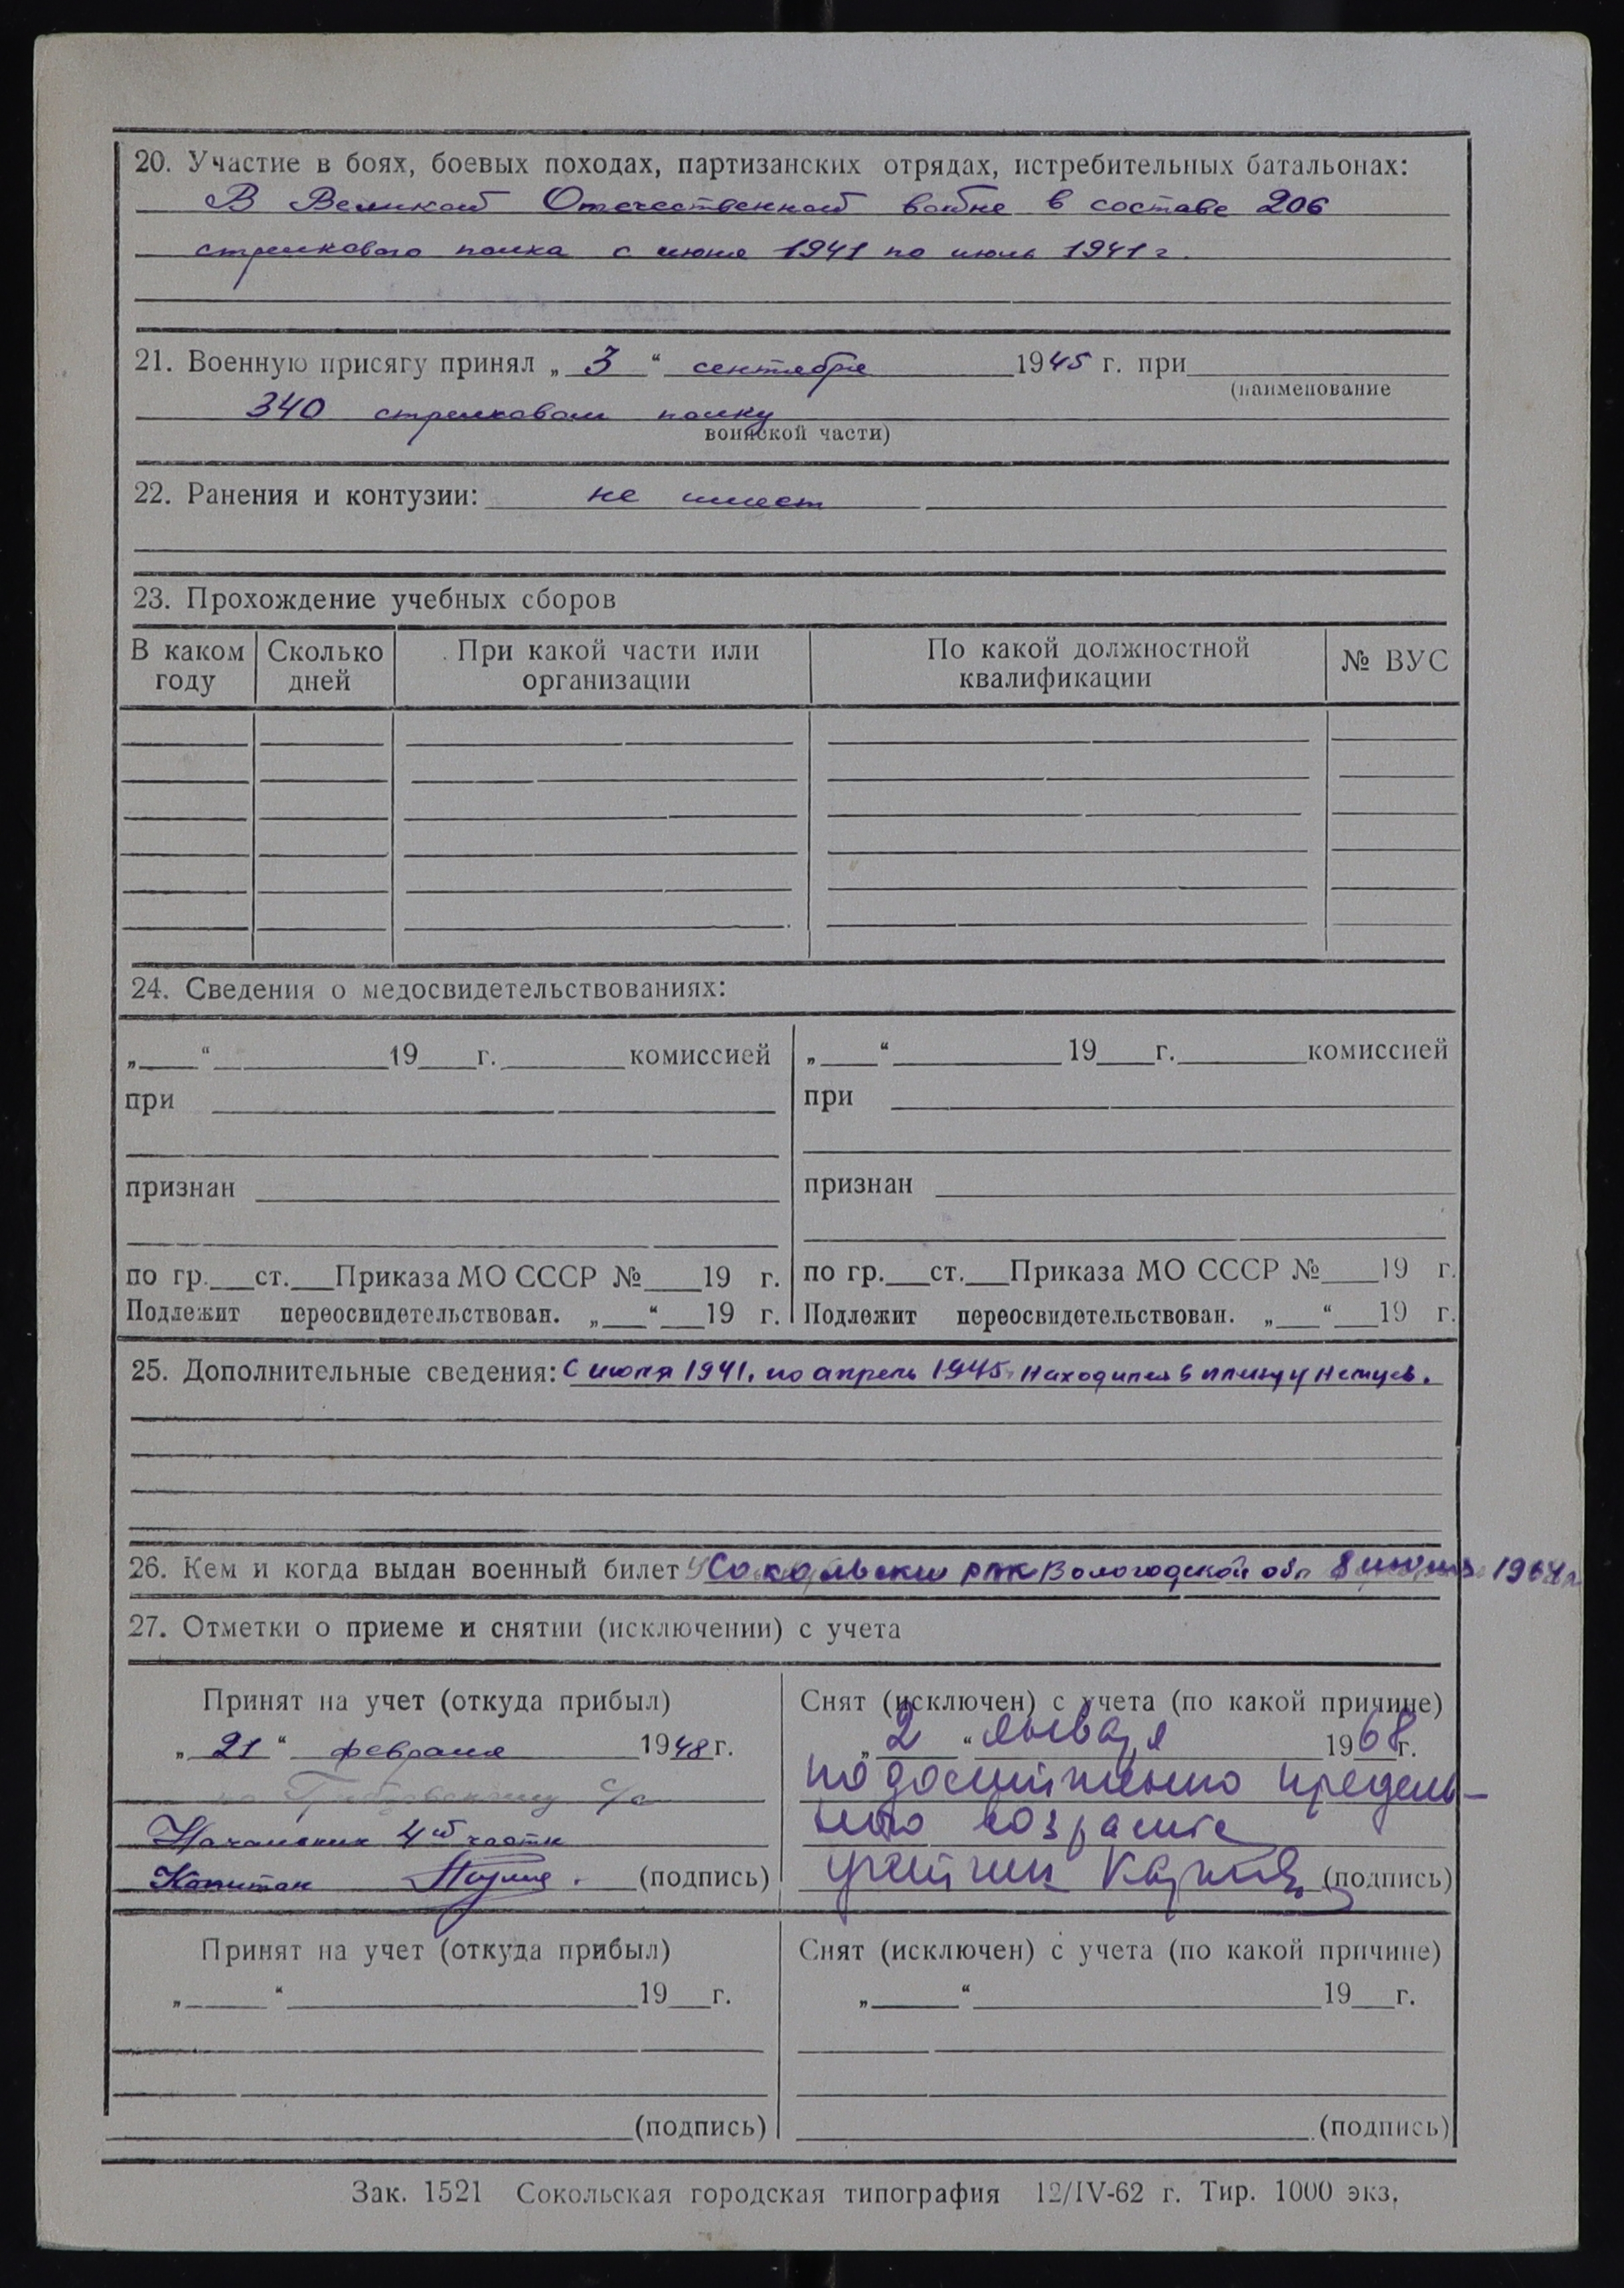 20. Участие в боях, боевых походах, партизанских отрядах, истребительных батальонах:
В Великой Отечественной войне в составе 206
стрелкового полка с июня 1941 по июль 1941 г.
21. Военную присягу принял „ 3 “ сентября 1945 г. при
(наименование
340 стрелковом полку
воинской части)
22. Ранения и контузии: не имеет
23. Прохождение учебных сборов
В каком году Сколько дней При какой части или организации По какой должностной квалификации № ВУС
24. Сведения о медосвидетельствованиях:
„ “ 19 г. комиссией
при
признан
по гр. ст. Приказа МО СССР № 19 г.
Подлежит переосвидетельствован. „ “ 19 г.
„ “ 19 г. комиссией
при
признан
по гр. ст. Приказа МО СССР № 19 г.
Подлежит переосвидетельствован. „ “ 19 г.
25. Дополнительные сведения: С июля 1941. по апрель 1945. Находился в плену у немцев.
26. Кем и когда выдан военный билет Сокольским РВК Вологодской обл 1964г
27. Отметки о приеме и снятии (исключении) с учета
Принят на учет (откуда прибыл)
„ 21 “ февраля 1948 г.
с/с
Начальник 4ой части
Капитан (подпись)
Снят (исключен) с учета (по какой причине)
„ 2 “ января 1968 г.
по достижению предель-
ного возраста
(подпись)
Принят на учет (откуда прибыл)
„ “ 19 г.
(подпись)
Снят (исключен) с учета (по какой причине)
„ “ 19 г.
(подпись)
Зак. 1521 Сокольская городская типография 12/IV-62 г. Тир. 1000 экз.